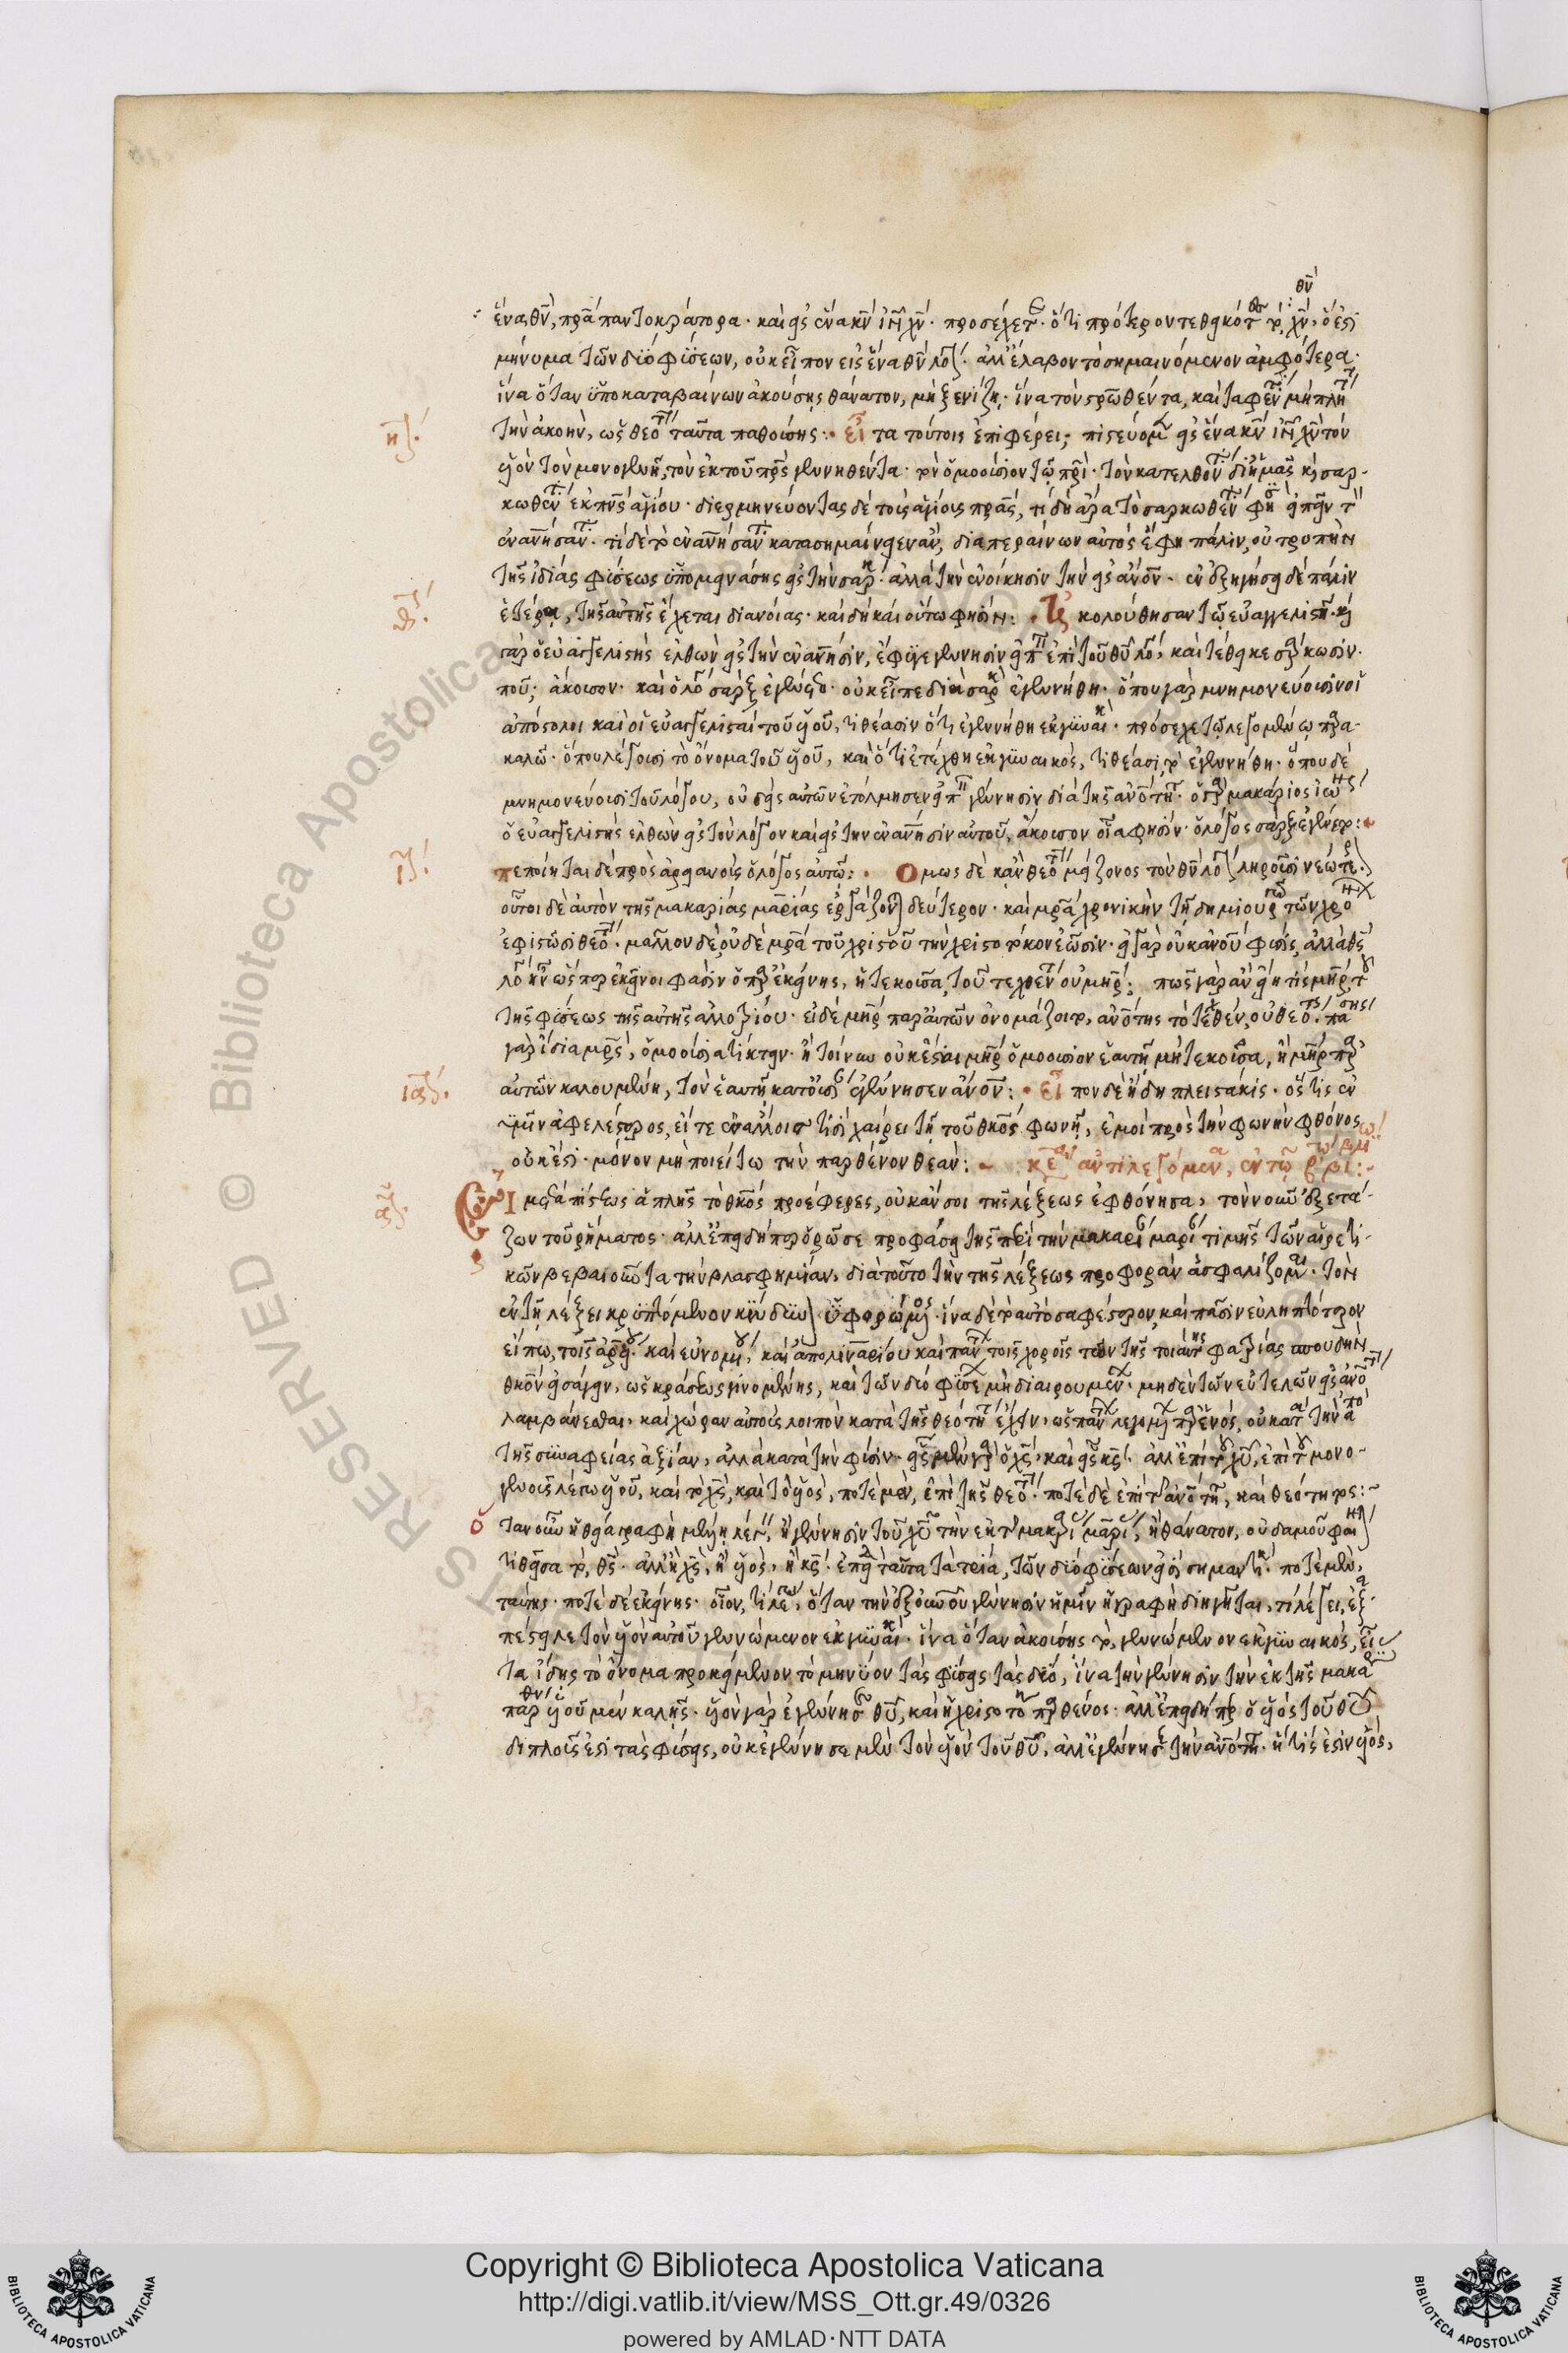 θν̅
ἕνα θν̅, πρ̅α παντοκράτορα· καὶ εἰς ἕνα κν̅ ιν̅ χν̅· προσέχετ· ὅτι πρότερον τεθεικότ χν̅, ὅ ἐστι
μήνυμα τῶν δύο φύσεων, οὐκ εἶπον εἰς ἕνα θν̅ λόγ· ἀλλ' ἔλαβον τὸ σημαινόμενον ἀμφότερα·
ἵνα ὅταν ὑποκαταβαίνων ἀκούσῃς θάνατον, μὴ ξενίζῃ· ἵνα τὸν στρωθέντα, καὶ ταφέν μὴ πλη
ηʹ. τὴν ἀκοὴν, ὡς θεο ταῦτα παθούσης: εἶ τα τούτοις ἐπιφέρει· πιστεύομ εἰς ἕνα κν̅ ιν̅ χν̅ τὸν
υἱὸν τὸν μονογενῆ, τὸν ἐκ τοῦ πρ̅ς γεννηθέντα· τὸν ὁμοούσιον τῷ πρ̅ι· τὸν κατελθον δι' ἡμᾶς κ σαρ-
κωθεν ἐκ πν̅ς ἁγίου· διερμηνεύοντας δὲ τοῖς ἁγίοις πρ̅ας, τί δὴ ἄρα τὸ σαρκωθὲν φη
ἐναν̅ησαν· τί δὲ τὸ ἐναν̅ησαν κατασημαίνειεν ἂν, διαπεραίνων αὐτὸς ἔφη πάλιν, οὐ τροπὴν
τῆς ἰδίας φύσεως ὑπομεινάσης εἰς τὴν σαρ· ἀλλὰ τὴν ἐνοίκησιν τὴν εἰς ἄν̅ον· ἐν ἐξηγήσει δὲ πάλιν
θʹ. ἑτέρᾳ, τῆς αὐτῆς ἔχεται διανοίας· καὶ δὴ καὶ οὕτω φησὶν: Ἠ κολούθησαν τῷ εὐαγγελιστῇ· κ
γὰρ ὁ εὐαγγελιστὴς ἐλθὼν εἰς τὴν ἐναν̅ησιν, ἔφυγε γέννησιν εἰπ ἐπὶ τοῦ θυ̅ λο, καὶ τέθεικε σαρκωσιν·
ποῦ; ἄκουσον· καὶ ὁ λο σὰρξ ἐγένετο· οὐκ εἶπε διὰ σαρ ἐγεννήθη· ὅπου γὰρ μνημονεύουσιν οἱ
ἀπόστολοι καὶ οἱ εὐαγγελισταὶ τοῦ υἱοῦ, τιθέασιν ὅτι ἐγεννήθη ἐκ γυναι· πρόσεχε τῷ λεγομένῳ παρα-
καλῶ· ὅπου λέγουσι τὸ ὄνομα τοῦ υἱοῦ, καὶ ὅτι ἐτέχθη ἐκ γυναικὸς, τιθέασι τὸ ἐγεννήθη· ὅπου δὲ
μνημονεύουσι τοῦ λόγου, οὐδεὶς αὐτῶν ἐτόλμησεν εἰπ γέννησιν διὰ τῆς ἀν̅οτη· ὁ γὰρ μακάριος ἰω
ὁ εὐαγγελιστὴς ἐλθὼν εἰς τὸν λόγον καὶ εἰς τὴν ἐναν̅ησιν αὐτοῦ, ἄκουσον οἷα φησίν· ὁ λόγος σὰρξ ἐγένετο:
ιʹ. πεποίηται δὲ πρὸς ἀρειανοὺς ὁ λόγος αὐτῷ: Ὅμως δὲ κἂν θεο μείζονος τὸν θν̅ λόγ κληροῦσι νεώτε·
οὗτοι δὲ αὐτὸν τῆς μακαρίας μαρίας ἐργάζον δεύτερον· καὶ μρ̅α χρονικὴν τῇ δημιουρ τῶν χρο
ἐφιστῶσι θεο· μᾶλλον δὲ, οὐδὲ μρ̅α τοῦ χριστοῦ τὴν χριστοτόκον ἐῶσιν· εἰ γὰρ οὐκ ἀν̅ου φύσις, ἀλλὰ θς̅
λο ἦν ὥσπερ ἐκεῖνοι φασὶν ὁ παρ ἐκείνης, ἡ τεκοῦσα, τοῦ τεχθεν οὐ μη̅ρ: πῶς γὰρ ἂν εἴη τὶς μη̅ρ τ
τῆς φύσεως τῆς αὐτῆς ἀλλοτρίου· εἰ δὲ μη̅ρ παρ' αὐτῶν ὀνομάζοιτο, ἀν̅οτης τὸ τεχθὲν, οὐ θεο· πα
γὰρ ἴσια μρ̅ς, ὁμοούσια τίκτειν· ἢ τοίνυν οὐκ ἔσται μη̅ρ ὁμοούσιον ἑαυτῇ μὴ τεκοῦσα, ἢ μη̅ρ παρ
ιαʹ. αὐτῶν καλουμένη, τὸν ἑαυτῇ κατ' οὐσι ἐγέννησεν ἄν̅ον: εἶ πον δὲ ἤδη πλειστάκις· ὅστις ἐν
ὑμῖν ἀφελέστερος, εἴτε ἐν ἄλλοις τισὶ χαίρει τῇ τοῦ θκ̅ος φωνῇ, ἐμοὶ πρὸς τὴν φωνὴν φθόνος
οὐκ ἔστι· μόνον μὴ ποιείτω τὴν παρθένον θεὰν: ἀντιλεγόμενα, ἐν τῷ
αʹ. Εἰ μετὰ πίστεως ἁπλῆς τὸ θκ̅ος προέφερες, οὐκ ἄν σοι τῆς λέξεως ἐφθόνησα, τὸν νοῦν ἐξετά-
ζων τοῦ ῥήματος· ἀλλ' ἐπειδήπερ ὁρῶ σε προφάσει τῆς περὶ τὴν μακαρι μαρι τιμῆς τῶν αἱρετι-
κῶν βεβαιοῦντα τὴν βλασφημίαν, διὰ τοῦτο τὴν τῆς λέξεως προφορὰν ἀσφαλίζομ· τὸν
ἐν τῇ λέξει κρυπτόμενον κίνδυν ὑφορώμε· ἵνα δὲ τὸ αὐτὸ σαφέστερον, καὶ πᾶσιν εὐληπτότερον
εἴπω, τοῖς ἀρει καὶ εὐνομι, καὶ ἀπολιναρίου καὶ παν τοῖς χοροῖς τῶν τῆς τοιαυτ φατρίας σπουδὴν
θκ̅ον εἰσάγειν, ὡς κράσεως γινομένης, καὶ τῶν δύο φύσε μὴ διαιρουμεν· μηδὲν τῶν εὐτελῶν εἰς ἀν̅ο
λαμβάνεσθαι, καὶ χώραν αὐτοῖς λοιπὸν κατὰ τῆς θεότη ἔχειν, ὡς παν λεγομε παρ ἑνὸς, οὐ κατ τὴν ἀπὸ
τῆς συναφείας ἀξίαν, ἀλλὰ κατὰ τὴν φύσιν· εἷς μὲν γὰρ ὁ χς̅, καὶ εἷς κς̅· ἀλλ' ἐπὶ τ χυ̅, ἐπὶ τ μονο-
γενοῦς λέγω υἱοῦ, καὶ τὸ χς̅, καὶ τὸ υἱὸς, ποτὲ μὲν, ἐπὶ τῆς θεο· ποτὲ δὲ ἐπὶ τ ἀν̅οτη, καὶ θεότητος:
Ὅ ταν οὖν ἡ θεία γραφὴ μέλλῃ λέγ, ἢ γέννησιν τοῦ χυ̅ τὴν ἐκ τ μακαρι μαρι, ἢ θάνατον, οὐδαμοῦ φαι
τιθεῖσα τὸ, θς̅· ἀλλ' ἢ χς̅, ἢ υἱὸς, ἢ κς̅· ἐπει ταῦτα τὰ τρία, τῶν δύο φύσεων εἰσὶ σημαντι· ποτὲ μὲν,
ταύτης· ποτὲ δὲ ἐκείνης· οἷον, τι λε, ὅταν τὴν ἐξ οὐνου γέννησιν ἡμῖν ἡ γραφὴ διηγῆται, τί λέγει, ἐξα
πέστειλε τὸν υἱὸν αὐτοῦ γεννώμενον ἐκ γυναι· ἵνα ὅταν ἀκούσῃς τὸ, γεννώμενον ἐκ γυναικὸς, εἶ
τα ἴδῃς τὸ ὄνομα προκείμενον τὸ μηνύον τὰς φύσεις τὰς δύο, ἵνα τὴν γέννησιν τὴν ἐκ τῆς μακα
παρθν υἱοῦ μὲν καλῇς· υἱὸν γὰρ ἐγέννησ θυ̅, καὶ ἡ χριστοτο παρθένος· ἀλλ' ἐπειδήπερ ὁ υἱὸς τοῦ θυ̅
διπλοῦς ἐστὶ τὰς φύσεις, οὐκ ἐγέννησε μὲν τὸν υἱὸν τοῦ θυ̅, ἀλλ' ἐγέννησ τὴν ἀν̅οτη· ἥτις ἐστὶν υἱὸς,
Copyright © Biblioteca Apostolica Vaticana
http://digi.vatlib.it/view/MSS_Ott.gr.49/0326
powered by AMLAD·NTT DATA
BIBLIOTECA APOSTOLICA VATICANA
BIBLIOTECA APOSTOLICA VATICANA
RESERVED © Biblioteca Apostolica